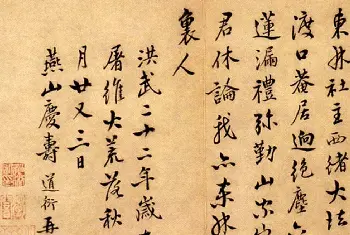 東林社主西緒大法
渡口菴居迥絕塵六
蓮漏禮弥勤山家
君休論我亦東林
裏人
洪武二十二年歲
屠維大荒落秋
月廿又三日
燕山慶壽道衍再